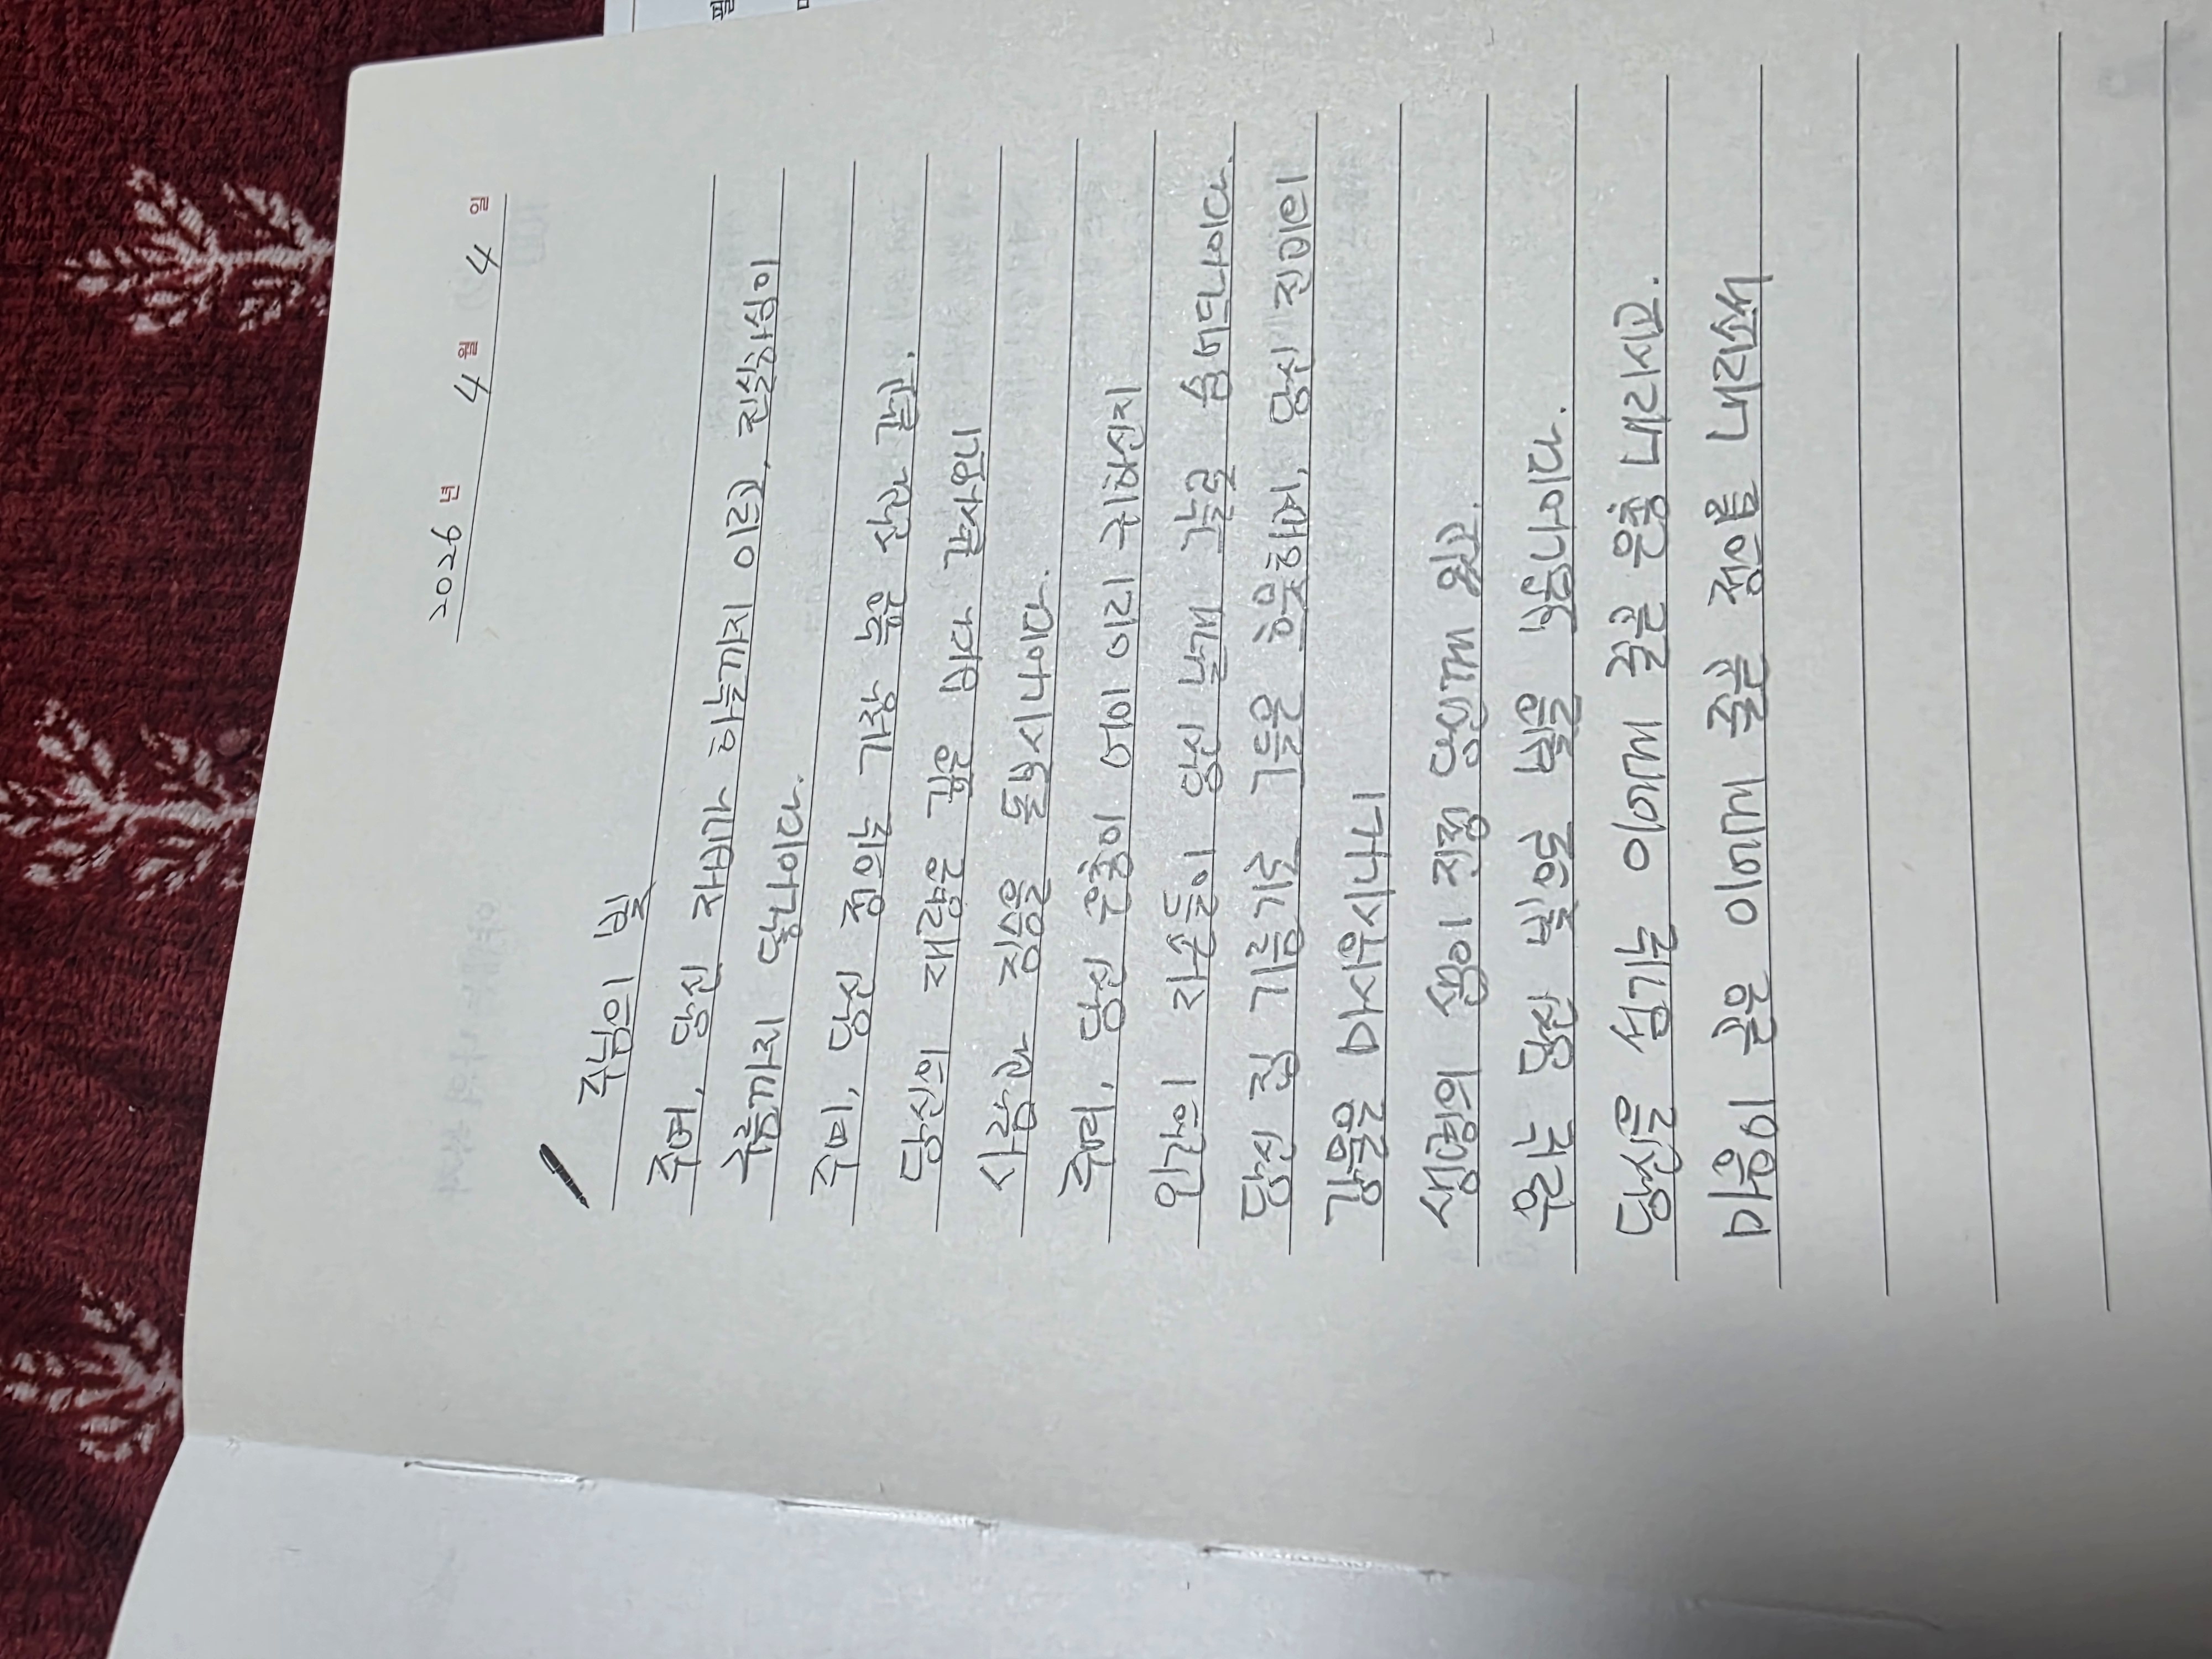 2026년 4월 4일
주님의 빛
주여, 당신 자비가 하늘까지 이르고, 진실하심이
구름까지 닿나이다.
주여, 당신 정의는 가장 높은 산과 같고.
당신의 재량은 깊은 바다 같사오니
사람과 짐승을 돌보시나이다.
주여, 당신 은총이 어이 이리 귀하신지
인간의 자손들이 당신 날개 그늘로 숨어드나이다.
당신 집 기름기로 그들은 당신 진미의
강물을 마시우시나니
생명의 샘이 진정 당신께 있고.
우리는 당신 빛으로 빛을
당신을 섬기는 이에게 은총 내리시고.
마음이 곧은 이에게 정의를 내리소서